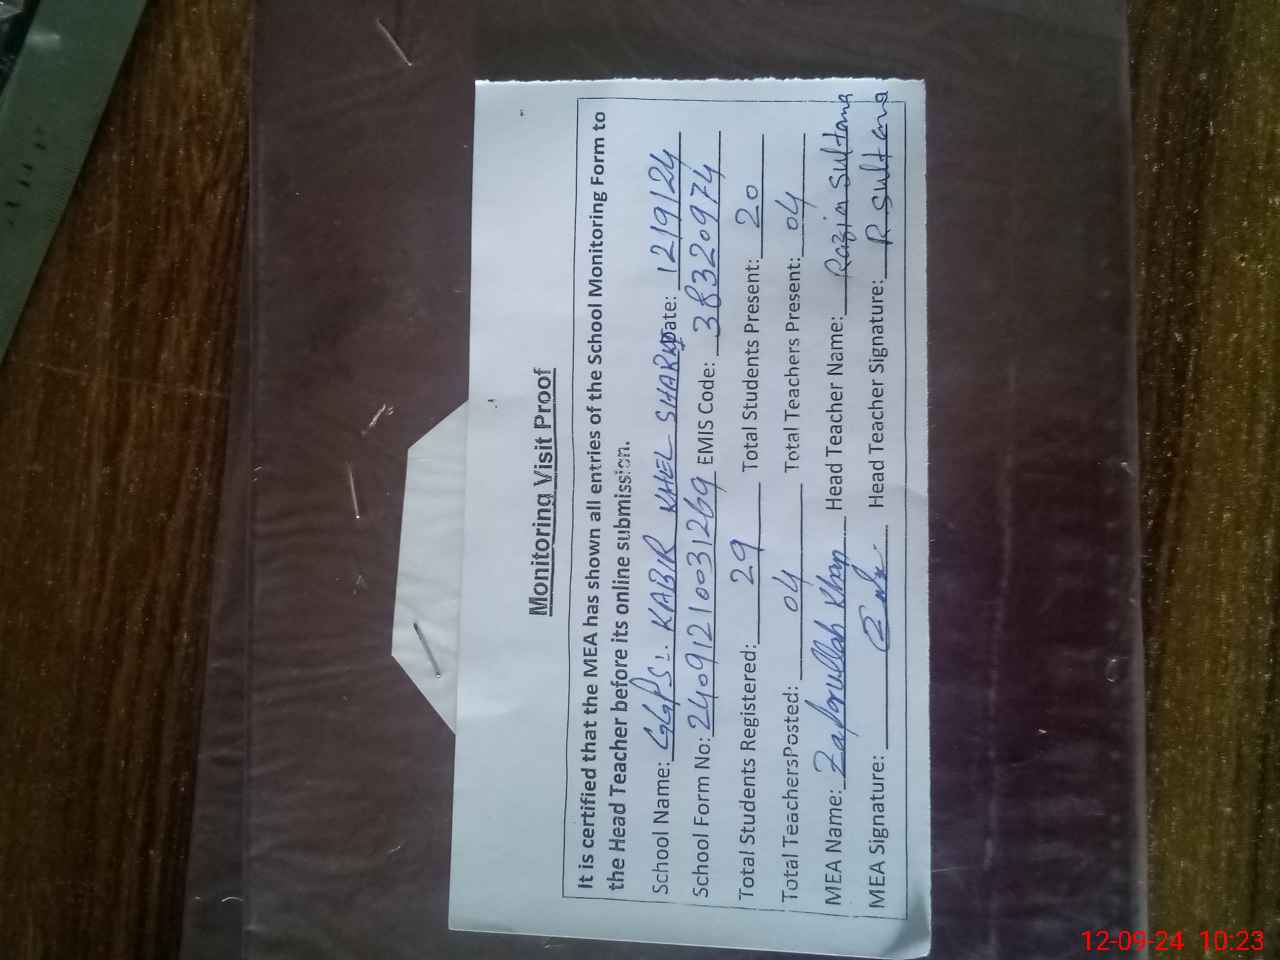 Monitoring Visit Proof
It is certified that the MEA has shown all entries of the School Monitoring Form to
the Head Teacher before its online submission.
School Name: GGPS:. KABIR KHEL SHARKI Date: 12/9/24
School Form No: 24091210031269 EMIS Code: 38320974
Total Students Registered: 29 Total Students Present: 20
Total TeachersPosted: 04 Total Teachers Present: 04
MEA Name: Zafarullah Khan Head Teacher Name: Razia Sultana
MEA Signature: Head Teacher Signature: R Sultana
12-09-24 10:23